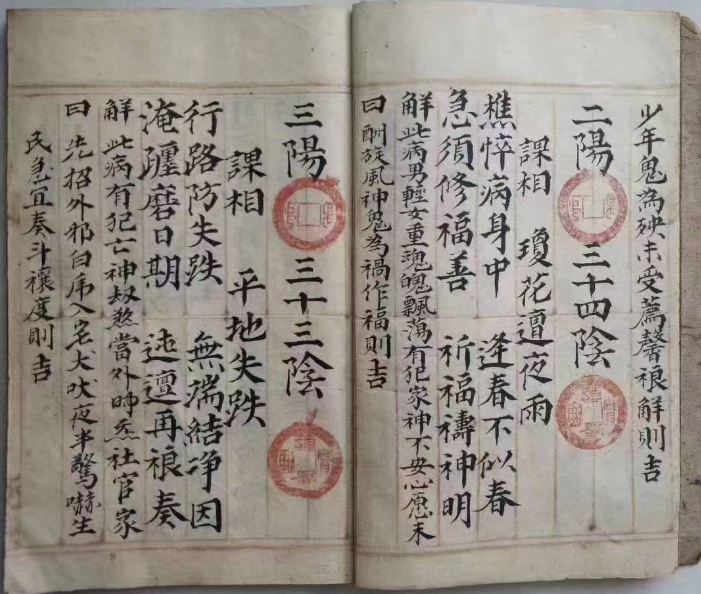 少年鬼為殃未受薦馨禳解則吉
二陽 三十四陰
課相 瓊花遭夜雨
樵悴病身中 逢春不似春
急須修福善 祈福禱神明
解此病男輕女重魂魄飄蕩有犯家神不安心愿未
曰酬旋風神鬼為禍作福則吉
三陽 三十三陰
課相 平地失跌
行路防失跌 無端結净因
淹躔磨日期 迍邅再禳奏
解此病有犯亡神劫煞當外師添社官家
曰先招外邪白虎入宅犬吠夜半驚嚇生
民急宜奏斗禳度則吉